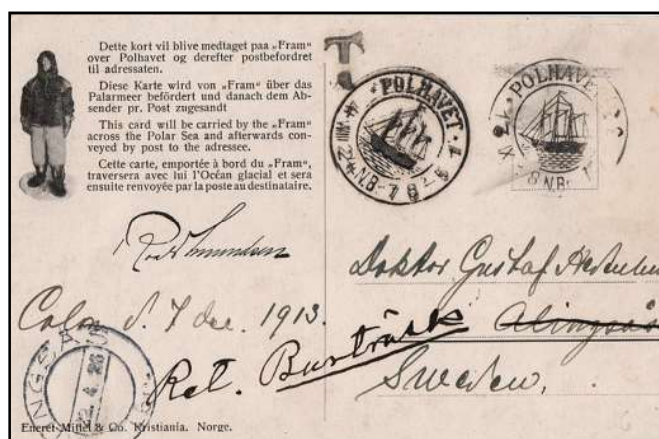 Dette kort vil blive medtaget paa „Fram“
over Polhavet og derefter postbefordret
til adressaten.
Diese Karte wird von „Fram“ über das
Palarmeer befördert und danach dem Ab-
sender pr. Post zugesandt
This card will be carried by the „Fram“
across the Polar Sea and afterwards con-
veyed by post to the adressee.
Cette carte, emportée à bord du „Fram“,
traversera avec lui l'Océan glacial et sera
ensuite renvoyée par la poste au destinataire.
T
POLHAVET
POLHAVE
N.B.
N.B.
Doktor Gustaf
Colon d. 7 dec. 1913.
Alingsås
Ret. Burträsk
Sweden.
INGSÅ
Eneret Mittet & Co. Kristiania. Norge.